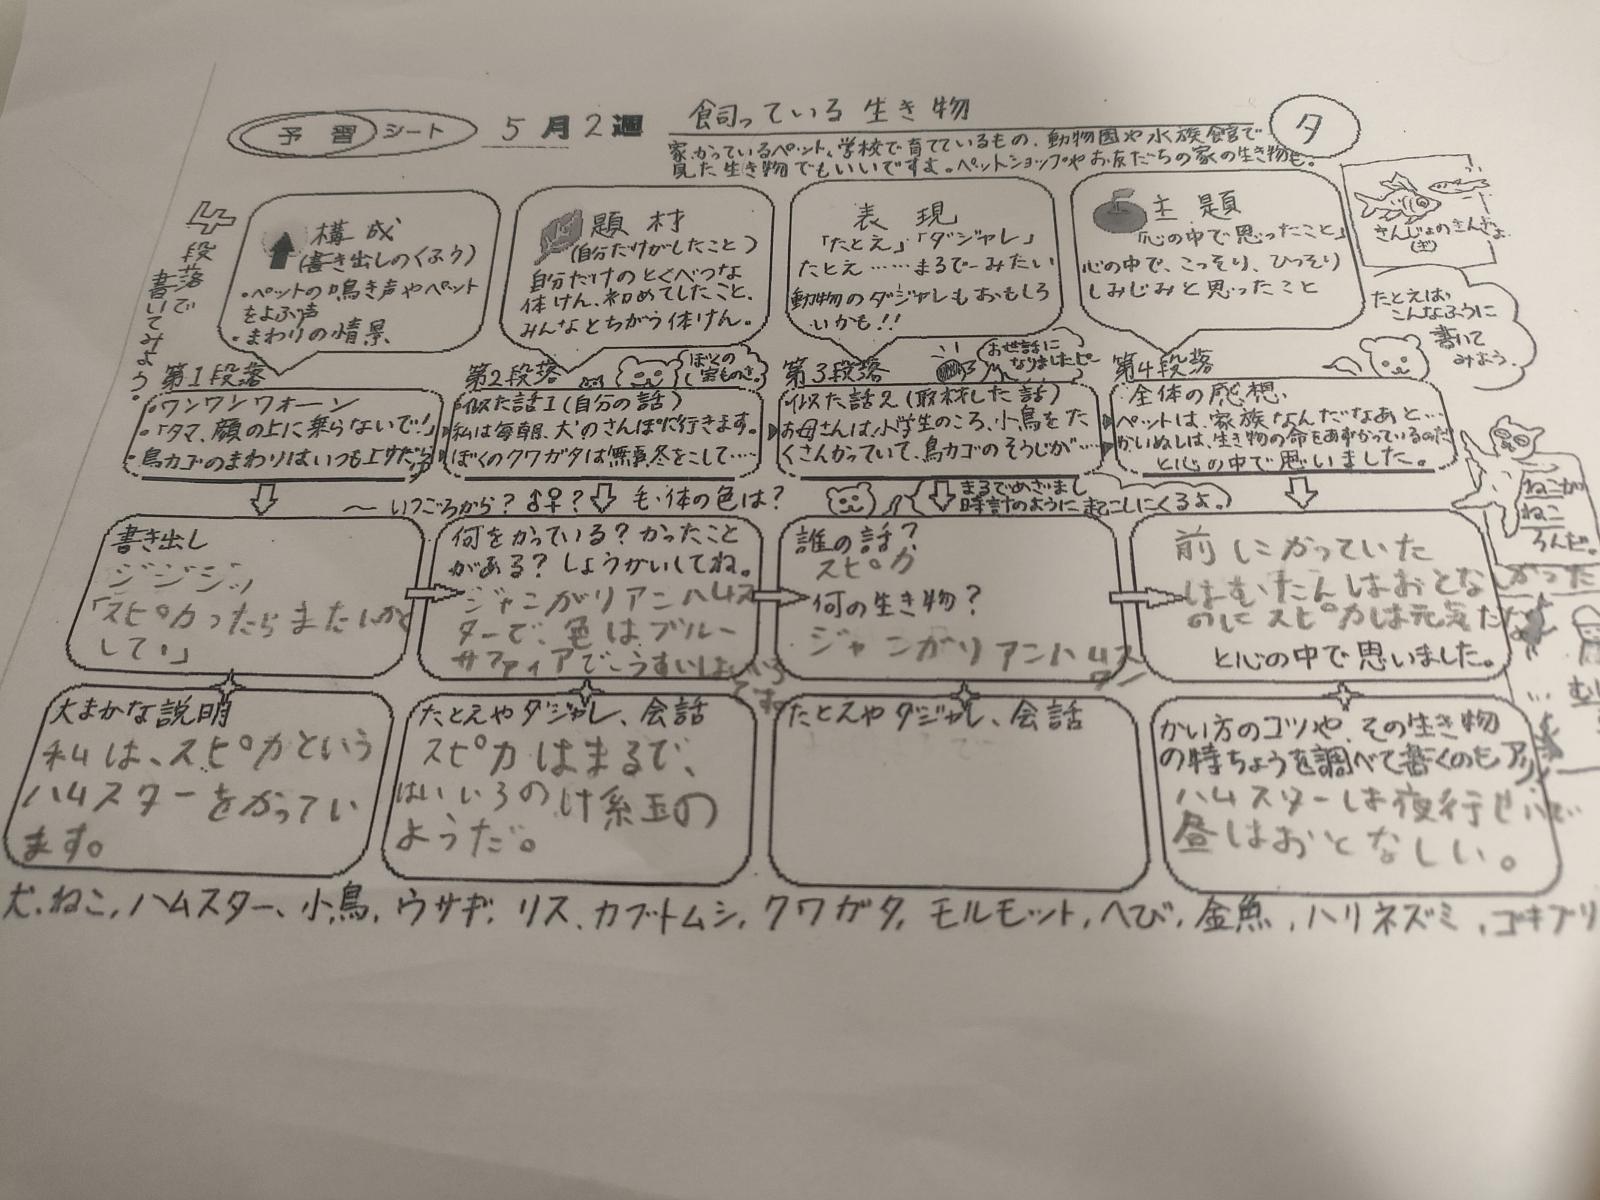 予習シート 5月2週 飼っている生き物 タ
家でかっているペット、学校で育てているもの、動物園や水族館で
見た生き物でもいいですよ。ペットショップやお友だちの家の生き物も。
4段落で
書いてみよう。
構成
(書き出しのくふう)
・ペットの鳴き声やペット
をよぶ声
・まわりの情景
題材
(自分だけがしたこと)
自分だけのとくべつな
体けん、初めてしたこと、
みんなとちがう体けん。
表現
「たとえ」「ダジャレ」
たとえ……まるで〜みたい
動物のダジャレもおもしろ
いかも!!
主題
「心の中で思ったこと」
心の中で、こっそり、ひっそり
しみじみと思ったこと
たとえば
こんなふうに
書いて
みよう。
第1段落
・ワンワンウォーン
・「タマ、顔の上に乗らないで!」
・鳥カゴのまわりはいつも
第2段落
ぼくの
宝ものさ。
似た話1(自分の話)
私は毎朝、犬のさんぽに行きます。
ぼくのクワガタは無事冬をこして……
第3段落
お世話に
なりましたピー
似た話2(取材した話)
お母さんは、小学生のころ、小鳥をた
くさんかっていて、鳥カゴのそうじが……
第4段落
全体の感想
ペットは、家族なんだなあと…
かいぬしは、生き物の命をあずかっているのだ
と心の中で思いました。
〜いつごろから? ♂♀? 毛・体の色は?
まるでめざまし
時計のように起こしにくるよ。
ねこが
ねこ
ろんだ。
書き出し
ジジジッ
「スピカったらまた
して!」
何をかっている? かったこと
がある? しょうかいしてね。
ジャンガリアンハムス
ターで、色はブルー
サファイアで
誰の話?
スピカ
何の生き物?
ジャンガリアンハムス
ター
前にかっていた
はむたんはおとな
のにスピカは元気だな
と心の中で思いました。
大まかな説明
私は、スピカという
ハムスターをかってい
ます。
たとえやダジャレ、会話
スピカはまるで、
はいいろのけ糸玉の
ようだ。
たとえやダジャレ、会話
かい方のコツや、その生き物
の特ちょうを調べて書くのもアリ
ハムスターは夜行せいで
昼はおとなしい。
犬、ねこ、ハムスター、小鳥、ウサギ、リス、カブトムシ、クワガタ、モルモット、へび、金魚、ハリネズミ、ゴキブリ